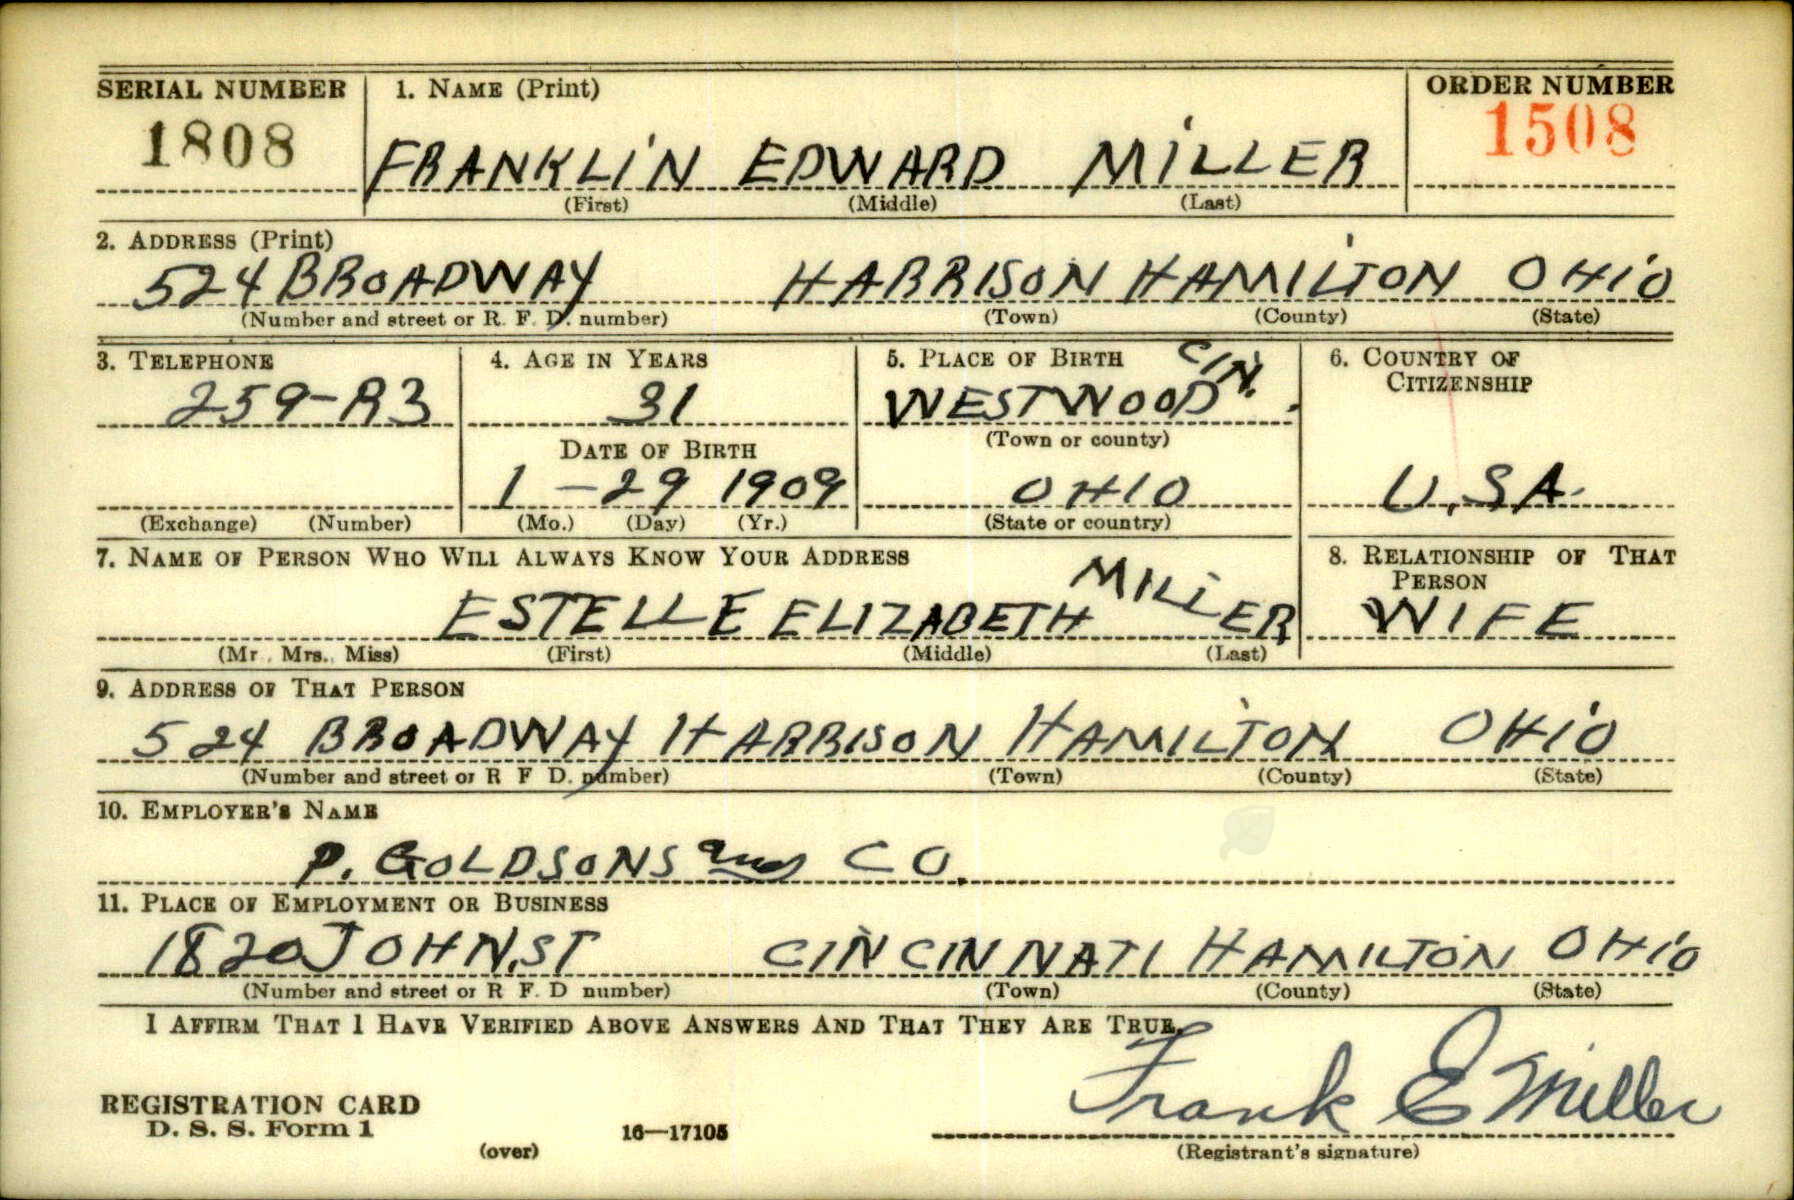 SERIAL NUMBER 1. NAME (Print) ORDER NUMBER
1808 FRANKLIN EDWARD MILLER 1508
(First) (Middle) (Last)
2. ADDRESS (Print)
524 BROADWAY HARRISON HAMILTON OHIO
(Number and street or R. F. D. number) (Town) (County) (State)
3. TELEPHONE 4. AGE IN YEARS 5. PLACE OF BIRTH 6. COUNTRY OF CITIZENSHIP
259-R3 31 WESTWOOD CIN.
DATE OF BIRTH (Town or county)
1-29 1909 OHIO U.S.A.
(Exchange) (Number) (Mo.) (Day) (Yr.) (State or country)
7. NAME OF PERSON WHO WILL ALWAYS KNOW YOUR ADDRESS 8. RELATIONSHIP OF THAT PERSON
ESTELLE ELIZABETH MILLER WIFE
(Mr., Mrs., Miss) (First) (Middle) (Last)
9. ADDRESS OF THAT PERSON
524 BROADWAY HARRISON HAMILTON OHIO
(Number and street or R. F. D. number) (Town) (County) (State)
10. EMPLOYER'S NAME
P. GOLDSONS and CO.
11. PLACE OF EMPLOYMENT OR BUSINESS
1820 JOHN.ST CINCINNATI HAMILTON OHIO
(Number and street or R. F. D. number) (Town) (County) (State)
I AFFIRM THAT I HAVE VERIFIED ABOVE ANSWERS AND THAT THEY ARE TRUE.
Frank E Miller
REGISTRATION CARD
D. S. S. Form 1
(over) 16—17105 (Registrant's signature)